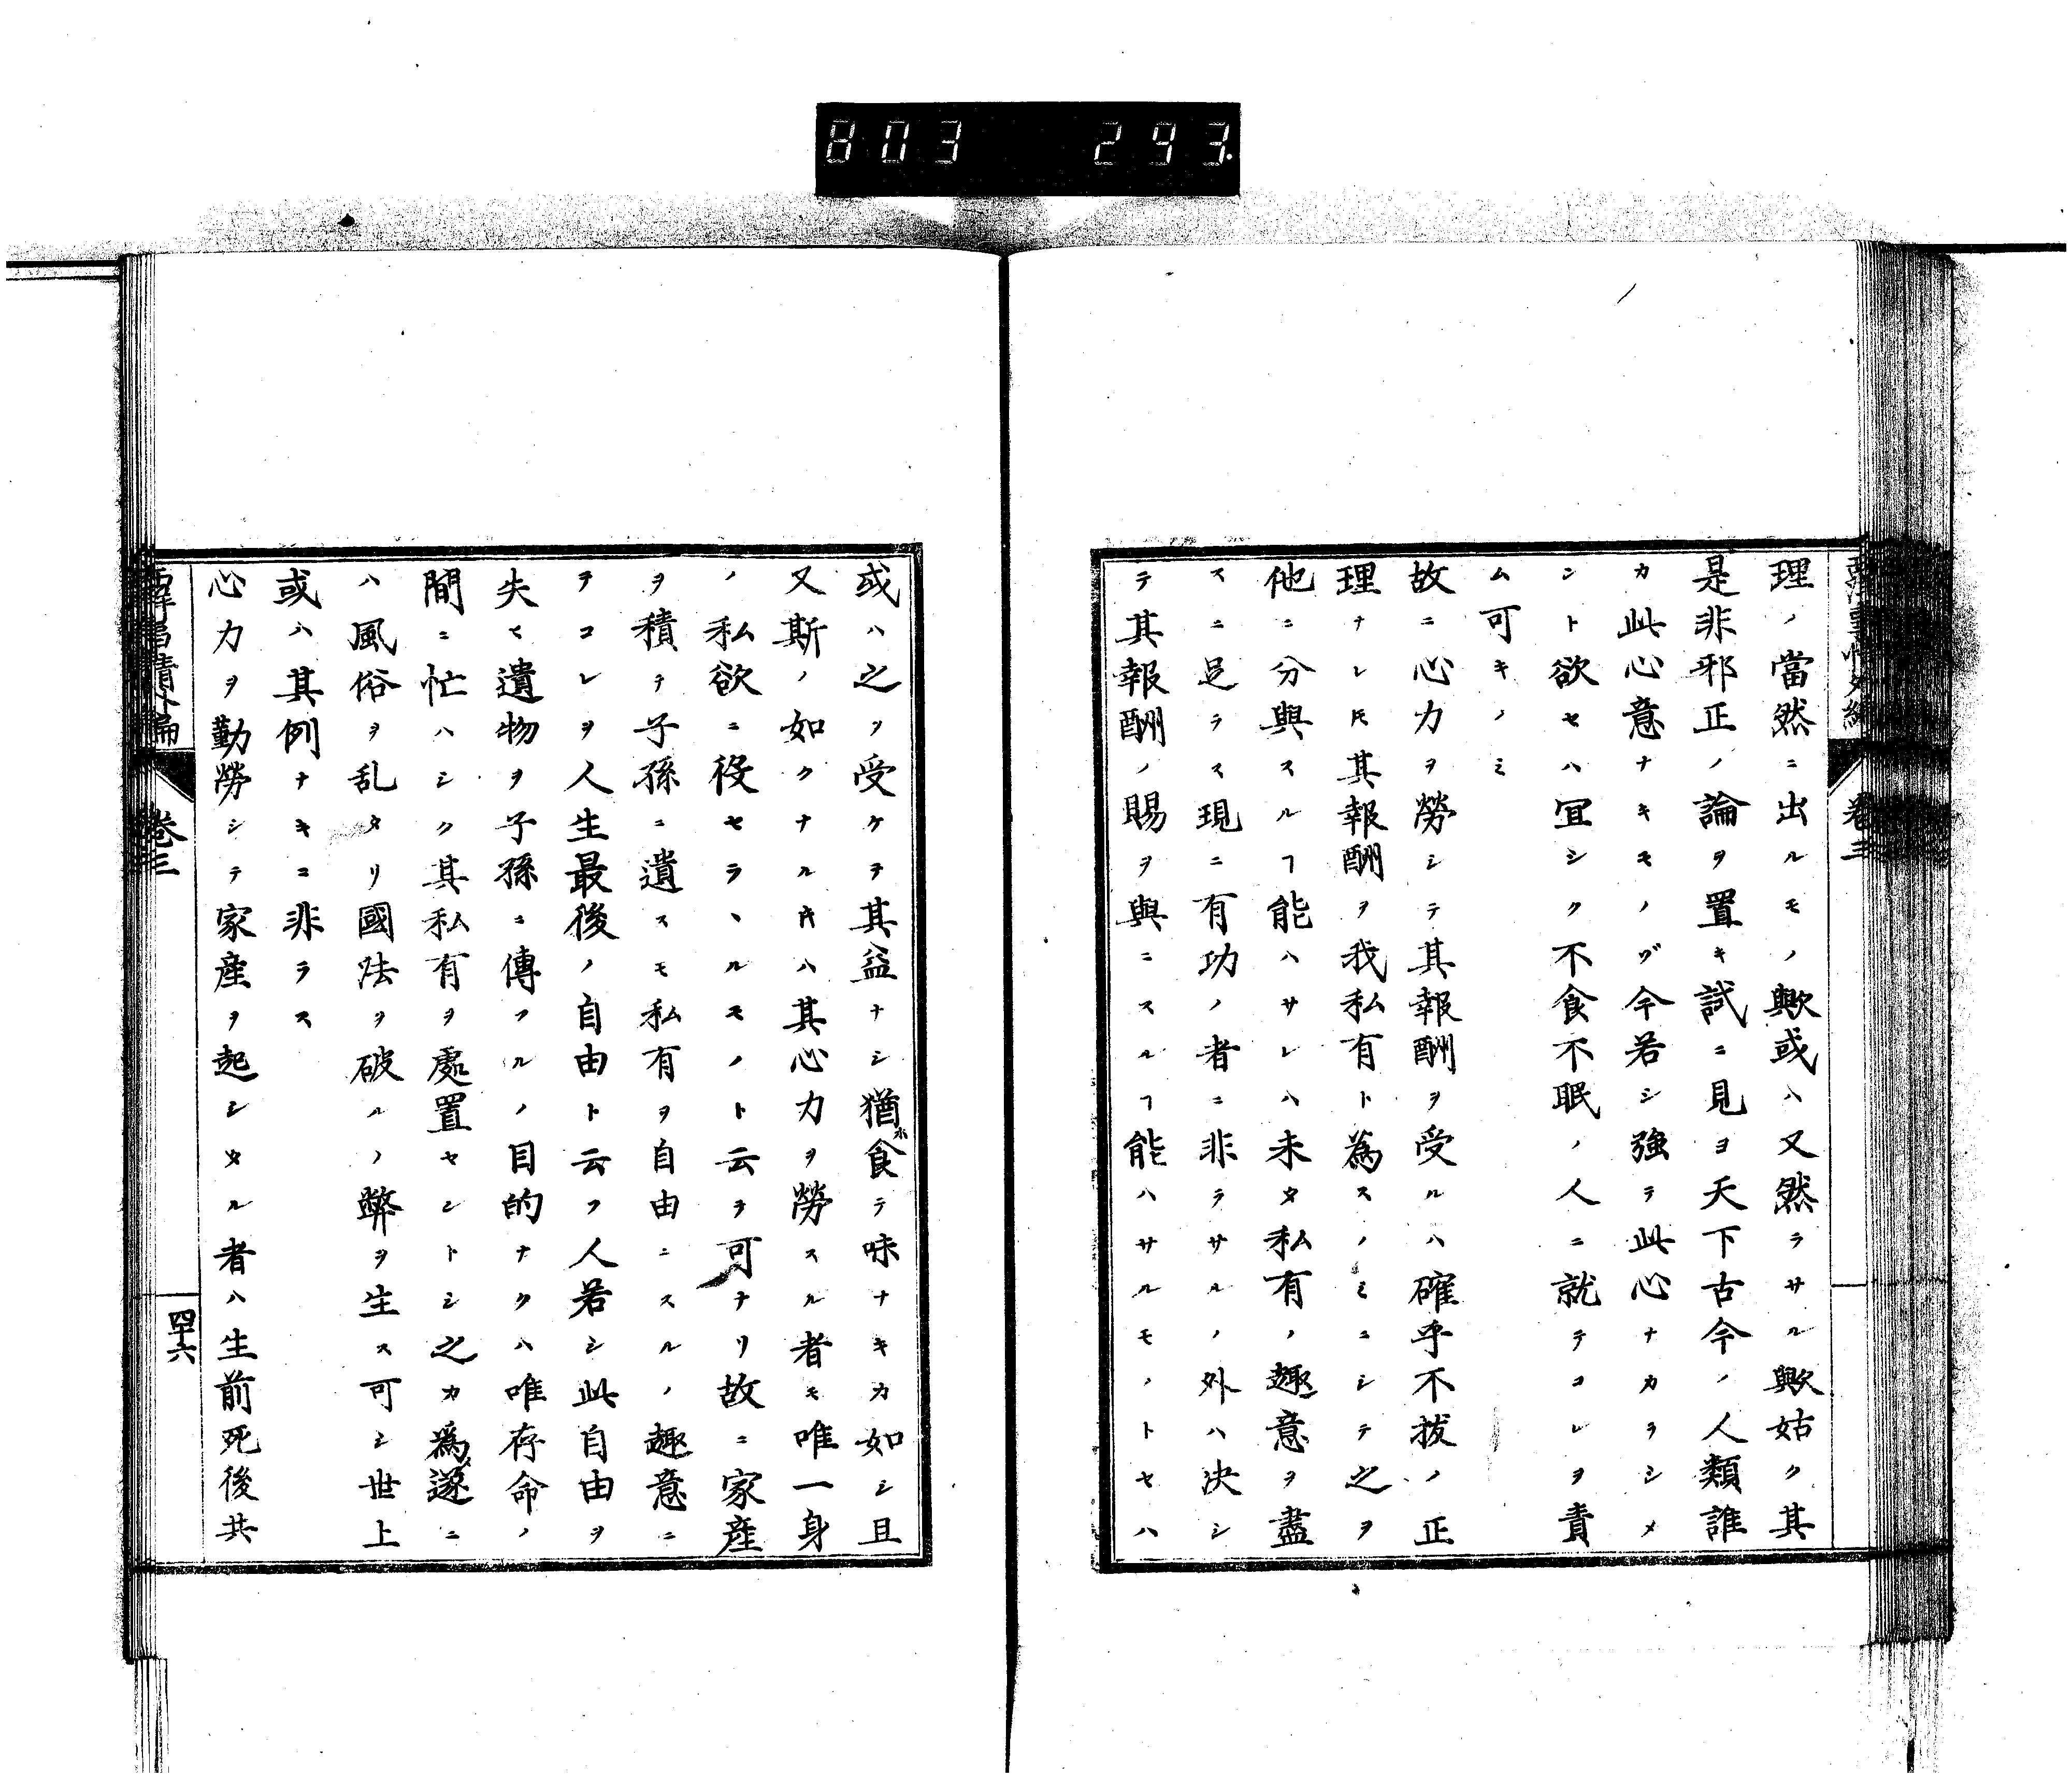 803 293.
理ノ當然ニ出ルモノ歟或ハ又然ラサル歟姑ク其
是非邪正ノ論ヲ置キ試ニ見ヨ天下古今ノ人類誰
カ此心意ナキモノゾ今若シ強テ此心ナカラシメ
ント欲セハ冝シク不食不眠ノ人ニ就テコレヲ責
ム可キノミ
故ニ心力ヲ勞シテ其報酬ヲ受ルハ確乎不拔ノ正
理ナレ𪜈其報酬ヲ我私有ト為スノミニシテ之ヲ
他ニ分與スルヿ能ハサレハ未タ私有ノ趣意ヲ盡
スニ足ラス現ニ有功ノ者ニ非ラサルノ外ハ决シ
テ其報酬ノ賜ヲ與ニスルヿ能ハサルモノトセハ
或ハ之ヲ受ケテ其益ナシ猶食テ味ナキカ如シ且
又斯ノ如クナル𪜈ハ其心力ヲ勞スル者モ唯一身
ノ私欲ニ役セラヽルモノト云ヲ可ナリ故ニ家産
ヲ積テ子孫ニ遺スモ私有ヲ自由ニスルノ趣意ニ
ヲコレヲ人生最後ノ自由ト云フ人若シ此自由ヲ
失ヒ遺物ヲ子孫ニ傳フルノ目的ナクハ唯存命ノ
間ニ忙ハシク其私有ヲ處置セントシ之カ爲メ遂ニ
ハ風俗ヲ乱タリ國法ヲ破ルノ弊ヲ生ス可シ世上
或ハ其例ナキニ非ラス
心力ヲ勤勞シテ家産ヲ起シタル者ハ生前死後共
西洋事情外編 卷三 四十六